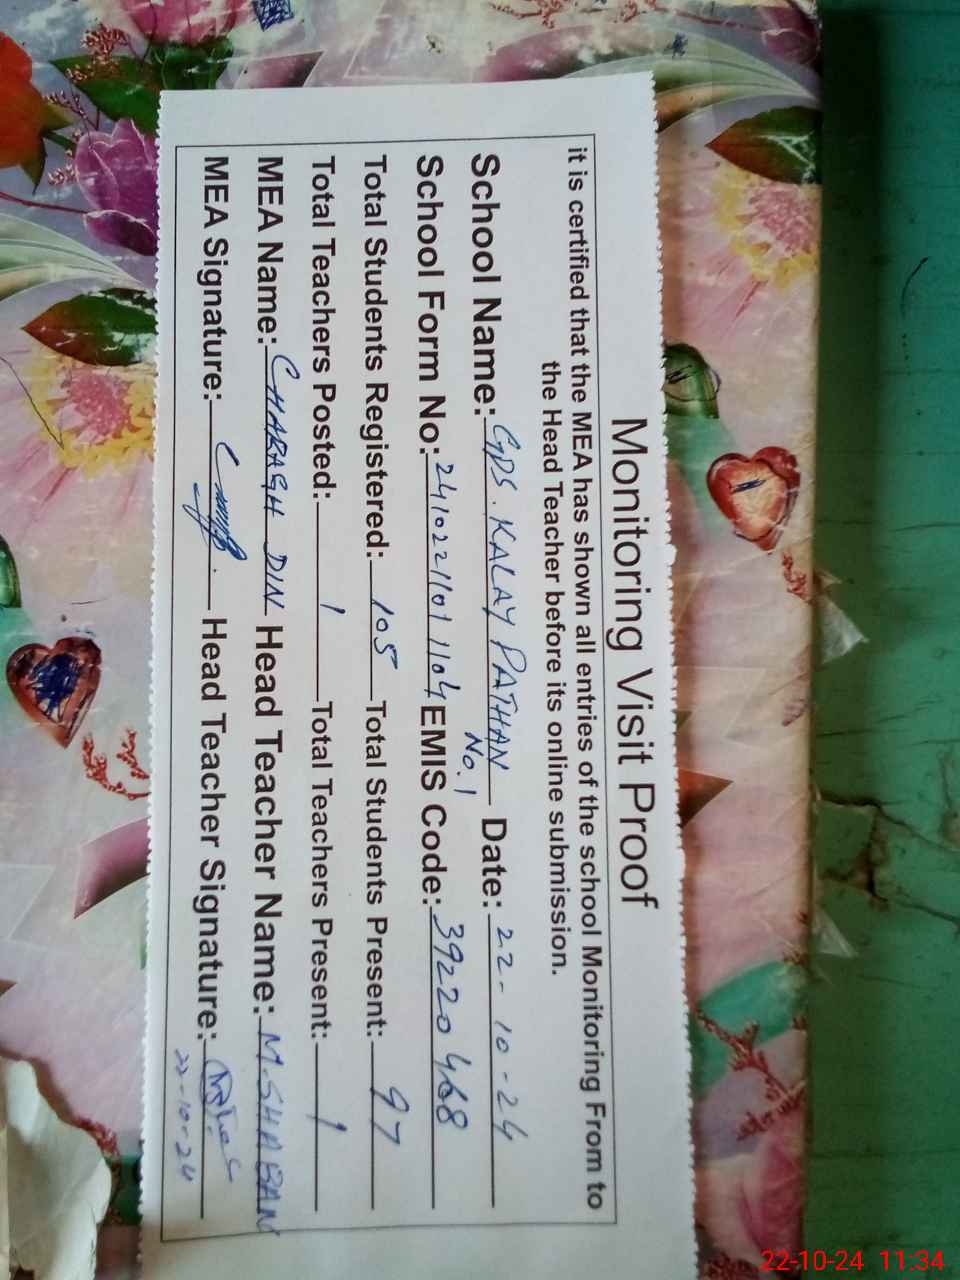 Monitoring Visit Proof
it is certified that the MEA has shown all entries of the school Monitoring From to
the Head Teacher before its online submission.
School Name: GPS. KALAY PATHAN No.1 Date: 22-10-24
School Form No: 241022110 1104 EMIS Code: 39220468
Total Students Registered: 105 Total Students Present: 97
Total Teachers Posted: 1 Total Teachers Present: 1
MEA Name: CHARAGH DIN Head Teacher Name: M.SHABAN
MEA Signature: Head Teacher Signature:
22-10-24
22-10-24 11:34